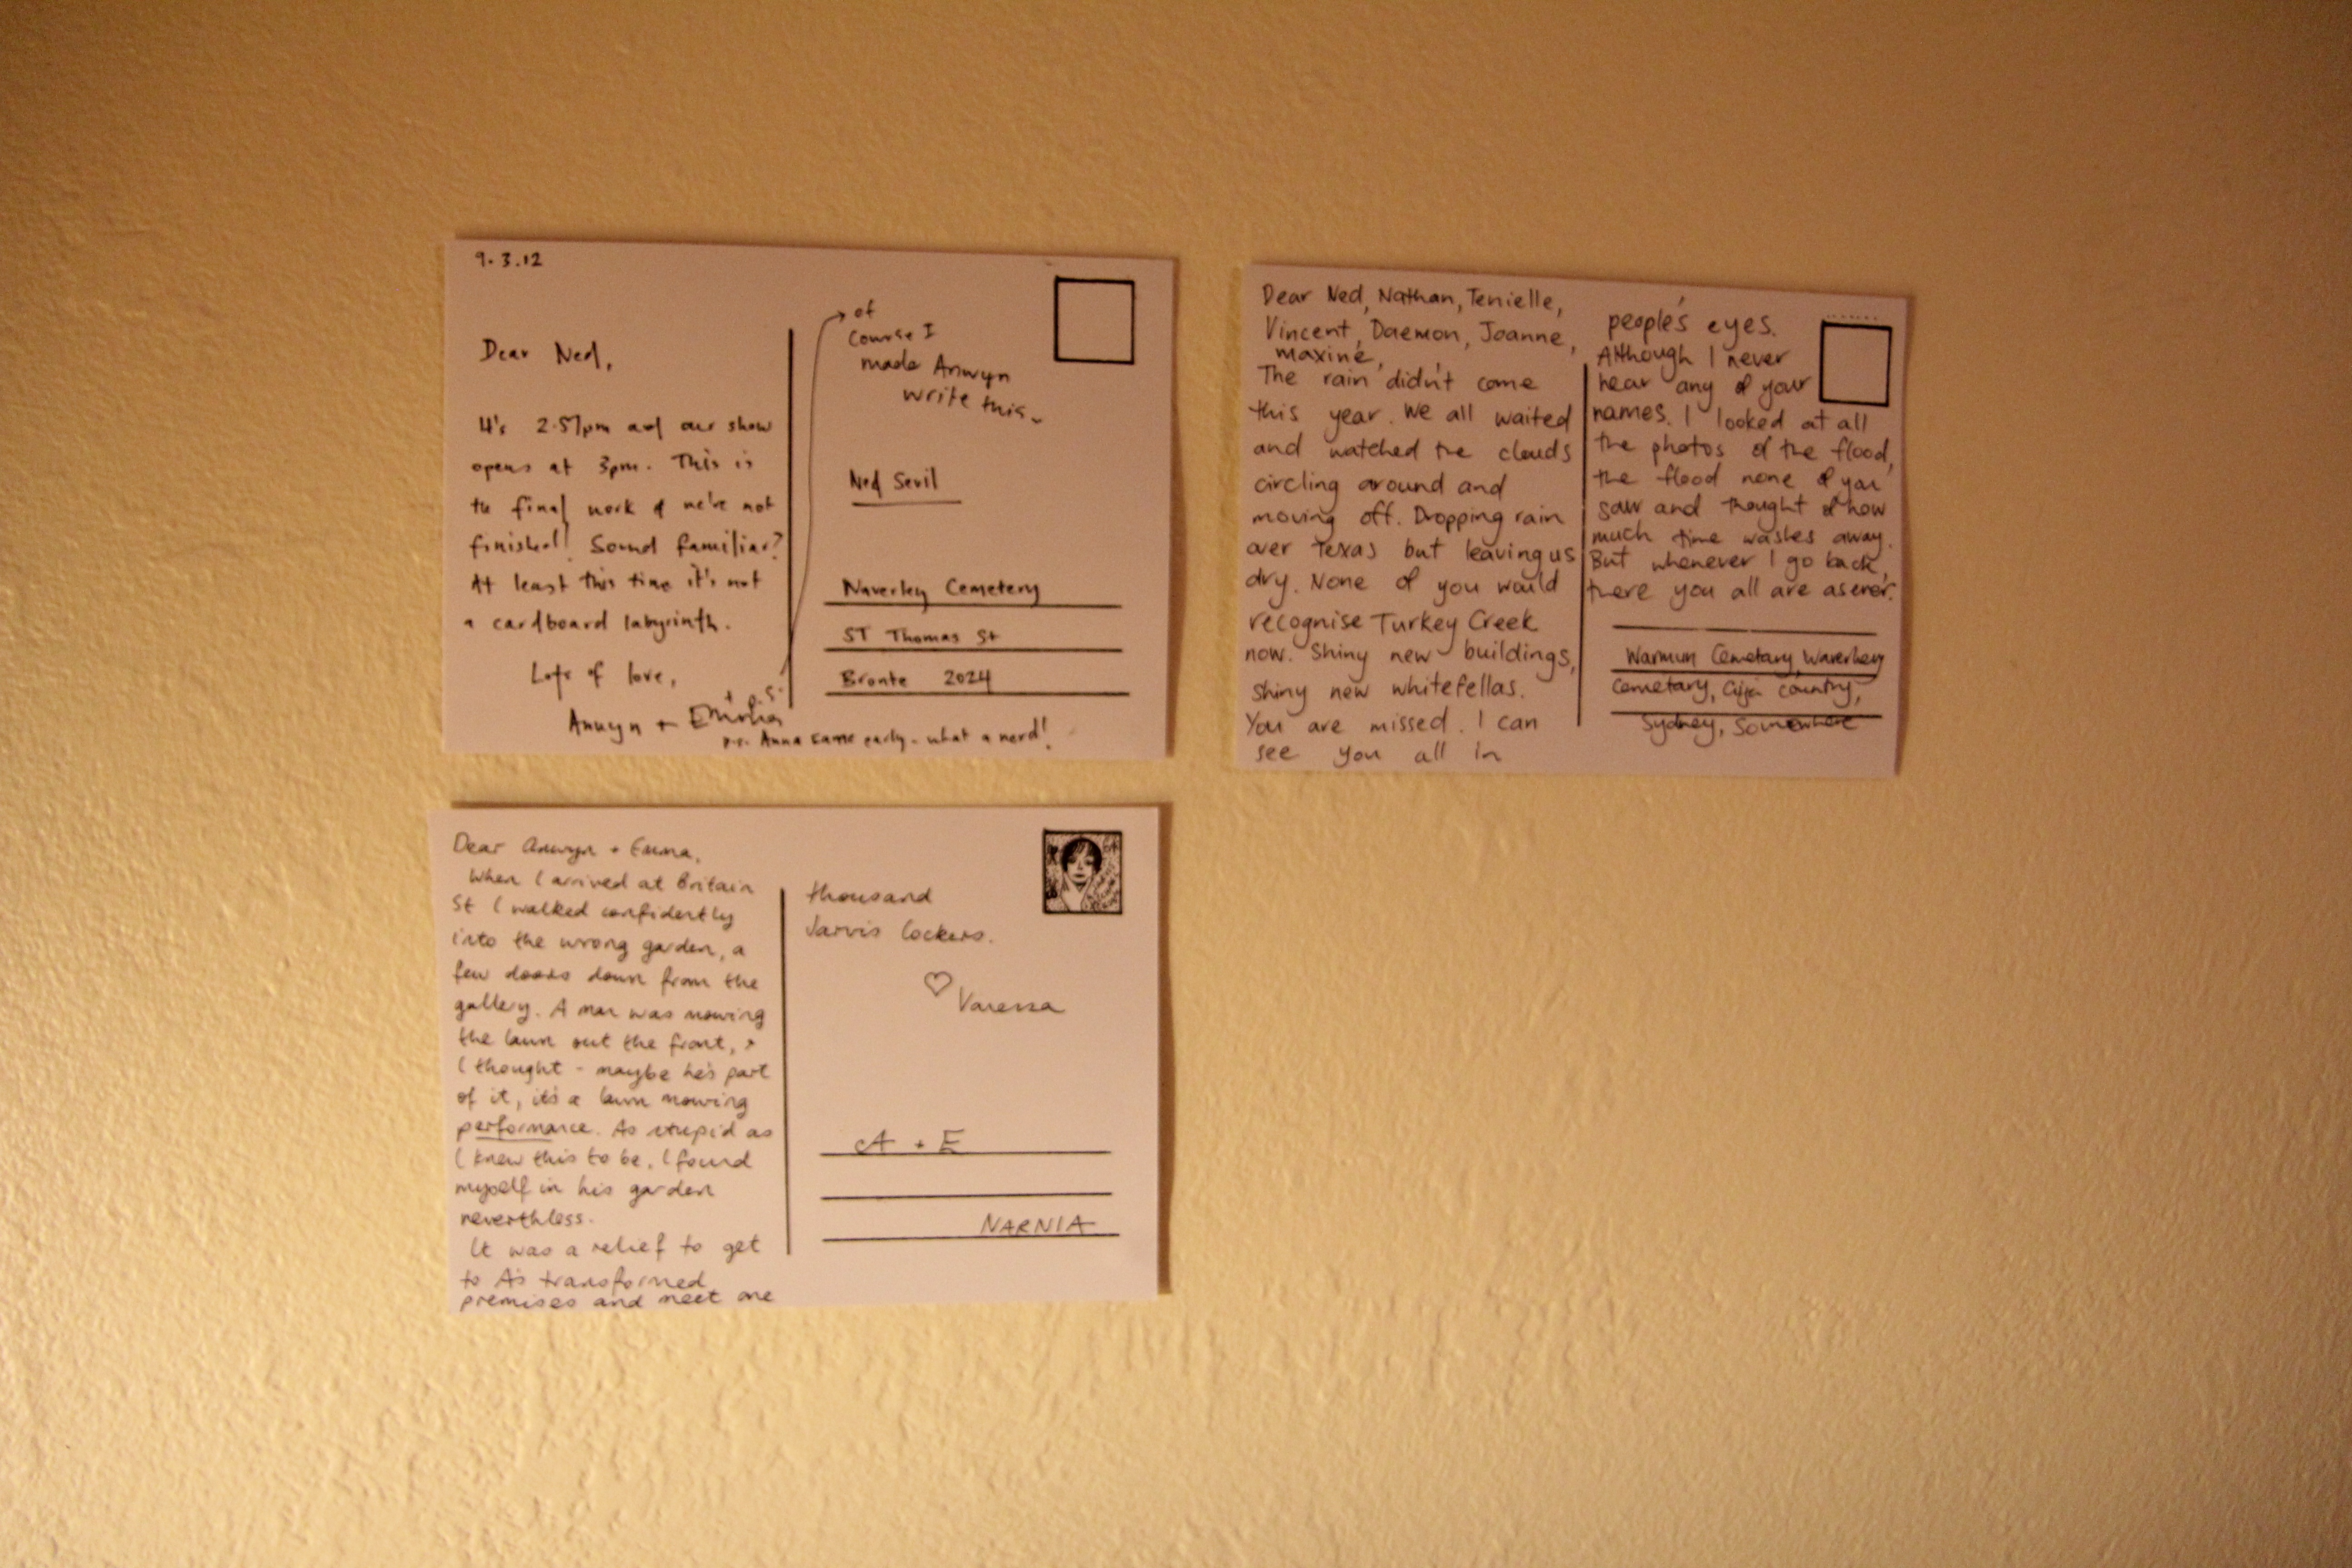 9.3.12
Dear Ned,
It's 2.57pm and our show
opens at 3pm. This is
the final work & we're not
finished! Sound familiar?
At least this time it's not
a cardboard labyrinth.
Lots of love,
Anwyn +
+ p.s.
p.s. Anna came early - what a nerd!
of
course I
made Anwyn
write this
Ned Sevil
Waverley Cemetery
ST Thomas St
Bronte 2024
Dear Ned, Nathan, Tenielle,
Vincent, Daemon, Joanne,
Maxine,
The rain didn't come
this year. We all waited
and watched the clouds
circling around and
moving off. Dropping rain
over Texas but leaving us
dry. None of you would
recognise Turkey Creek
now. Shiny new buildings,
shiny new whitefellas.
You are missed. I can
see you all in
people's eyes.
Although I never
hear any of your
names. I looked at all
the photos of the flood,
the flood none of you
saw and thought of how
much time washes away.
But whenever I go back,
there you all are as ever.
Warmun Cemetary, Waverley
Cemetary, Gija country,
Sydney, Somewhere
Dear Anwyn + Emma,
When I arrived at Britain
St I walked confidently
into the wrong garden, a
few doors down from the
gallery. A man was mowing
the lawn out the front, +
I thought - maybe he's part
of it, it's a lawn mowing
performance. As stupid as
I knew this to be, I found
myself in his garden
nevertheless.
It was a relief to get
to A's transformed
premises and meet one
thousand
Jarvis Cockers.
♡ Vanessa
A + E
NARNIA